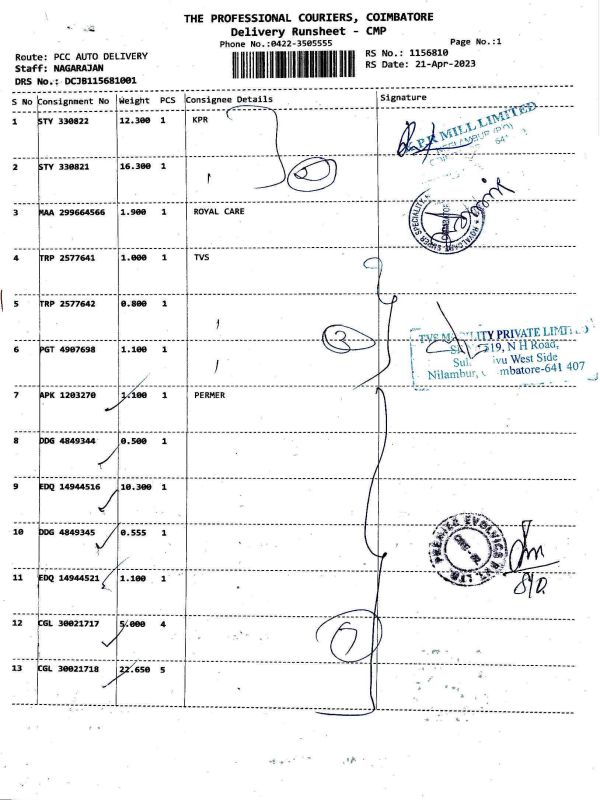 THE PROFESSIONAL COURIERS, COIMBATORE
Delivery Runsheet - CMP
Phone No.:0422-3505555
Page No.:1
Route: PCC AUTO DELIVERY
RS No.: 1156810
Staff: NAGARAJAN
RS Date: 21-Apr-2023
DRS No.: DCJB115681001
S No Consignment No Weight PCS Consignee Details Signature
1 STY 330822 12.300 1 KPR
MILL LIMITED
2 STY 330821 16.300 1
2
3 MAA 299664566 1.900 1 ROYAL CARE
4 TRP 2577641 1.000 1 TVS
5 TRP 2577642 0.800 1
3
TVS MOBILITY PRIVATE LIMITED
519, N H Road,
West Side
Nilambur, Coimbatore-641 407
6 PGT 4907698 1.100 1
7 APK 1203270 1.100 1 PERMER
8 DDG 4849344 0.500 1
9 EDQ 14944516 10.300 1
10 DDG 4849345 0.555 1
PREMIER EVOLVICS PVT. LTD.
11 EDQ 14944521 1.100 1
12 CGL 30021717 5.000 4
7
13 CGL 30021718 22.650 5